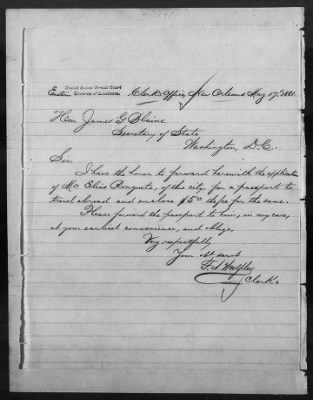 United States Circuit Court
Eastern District of Louisiana. Clerk's Office, New Orleans May 17th 1881.
Hon James G Blaine
Secretary of State
Washington, D.C.
Sir.
I have the honor to forward herewith the application
of Mr. Elias, of this city, for a passport to
travel abroad and enclose $5.00 for the same.
Please forward the passport to him, in my care,
at your earliest convenience, and oblige,
Very respectfully
Your Obt servt
Clerk.